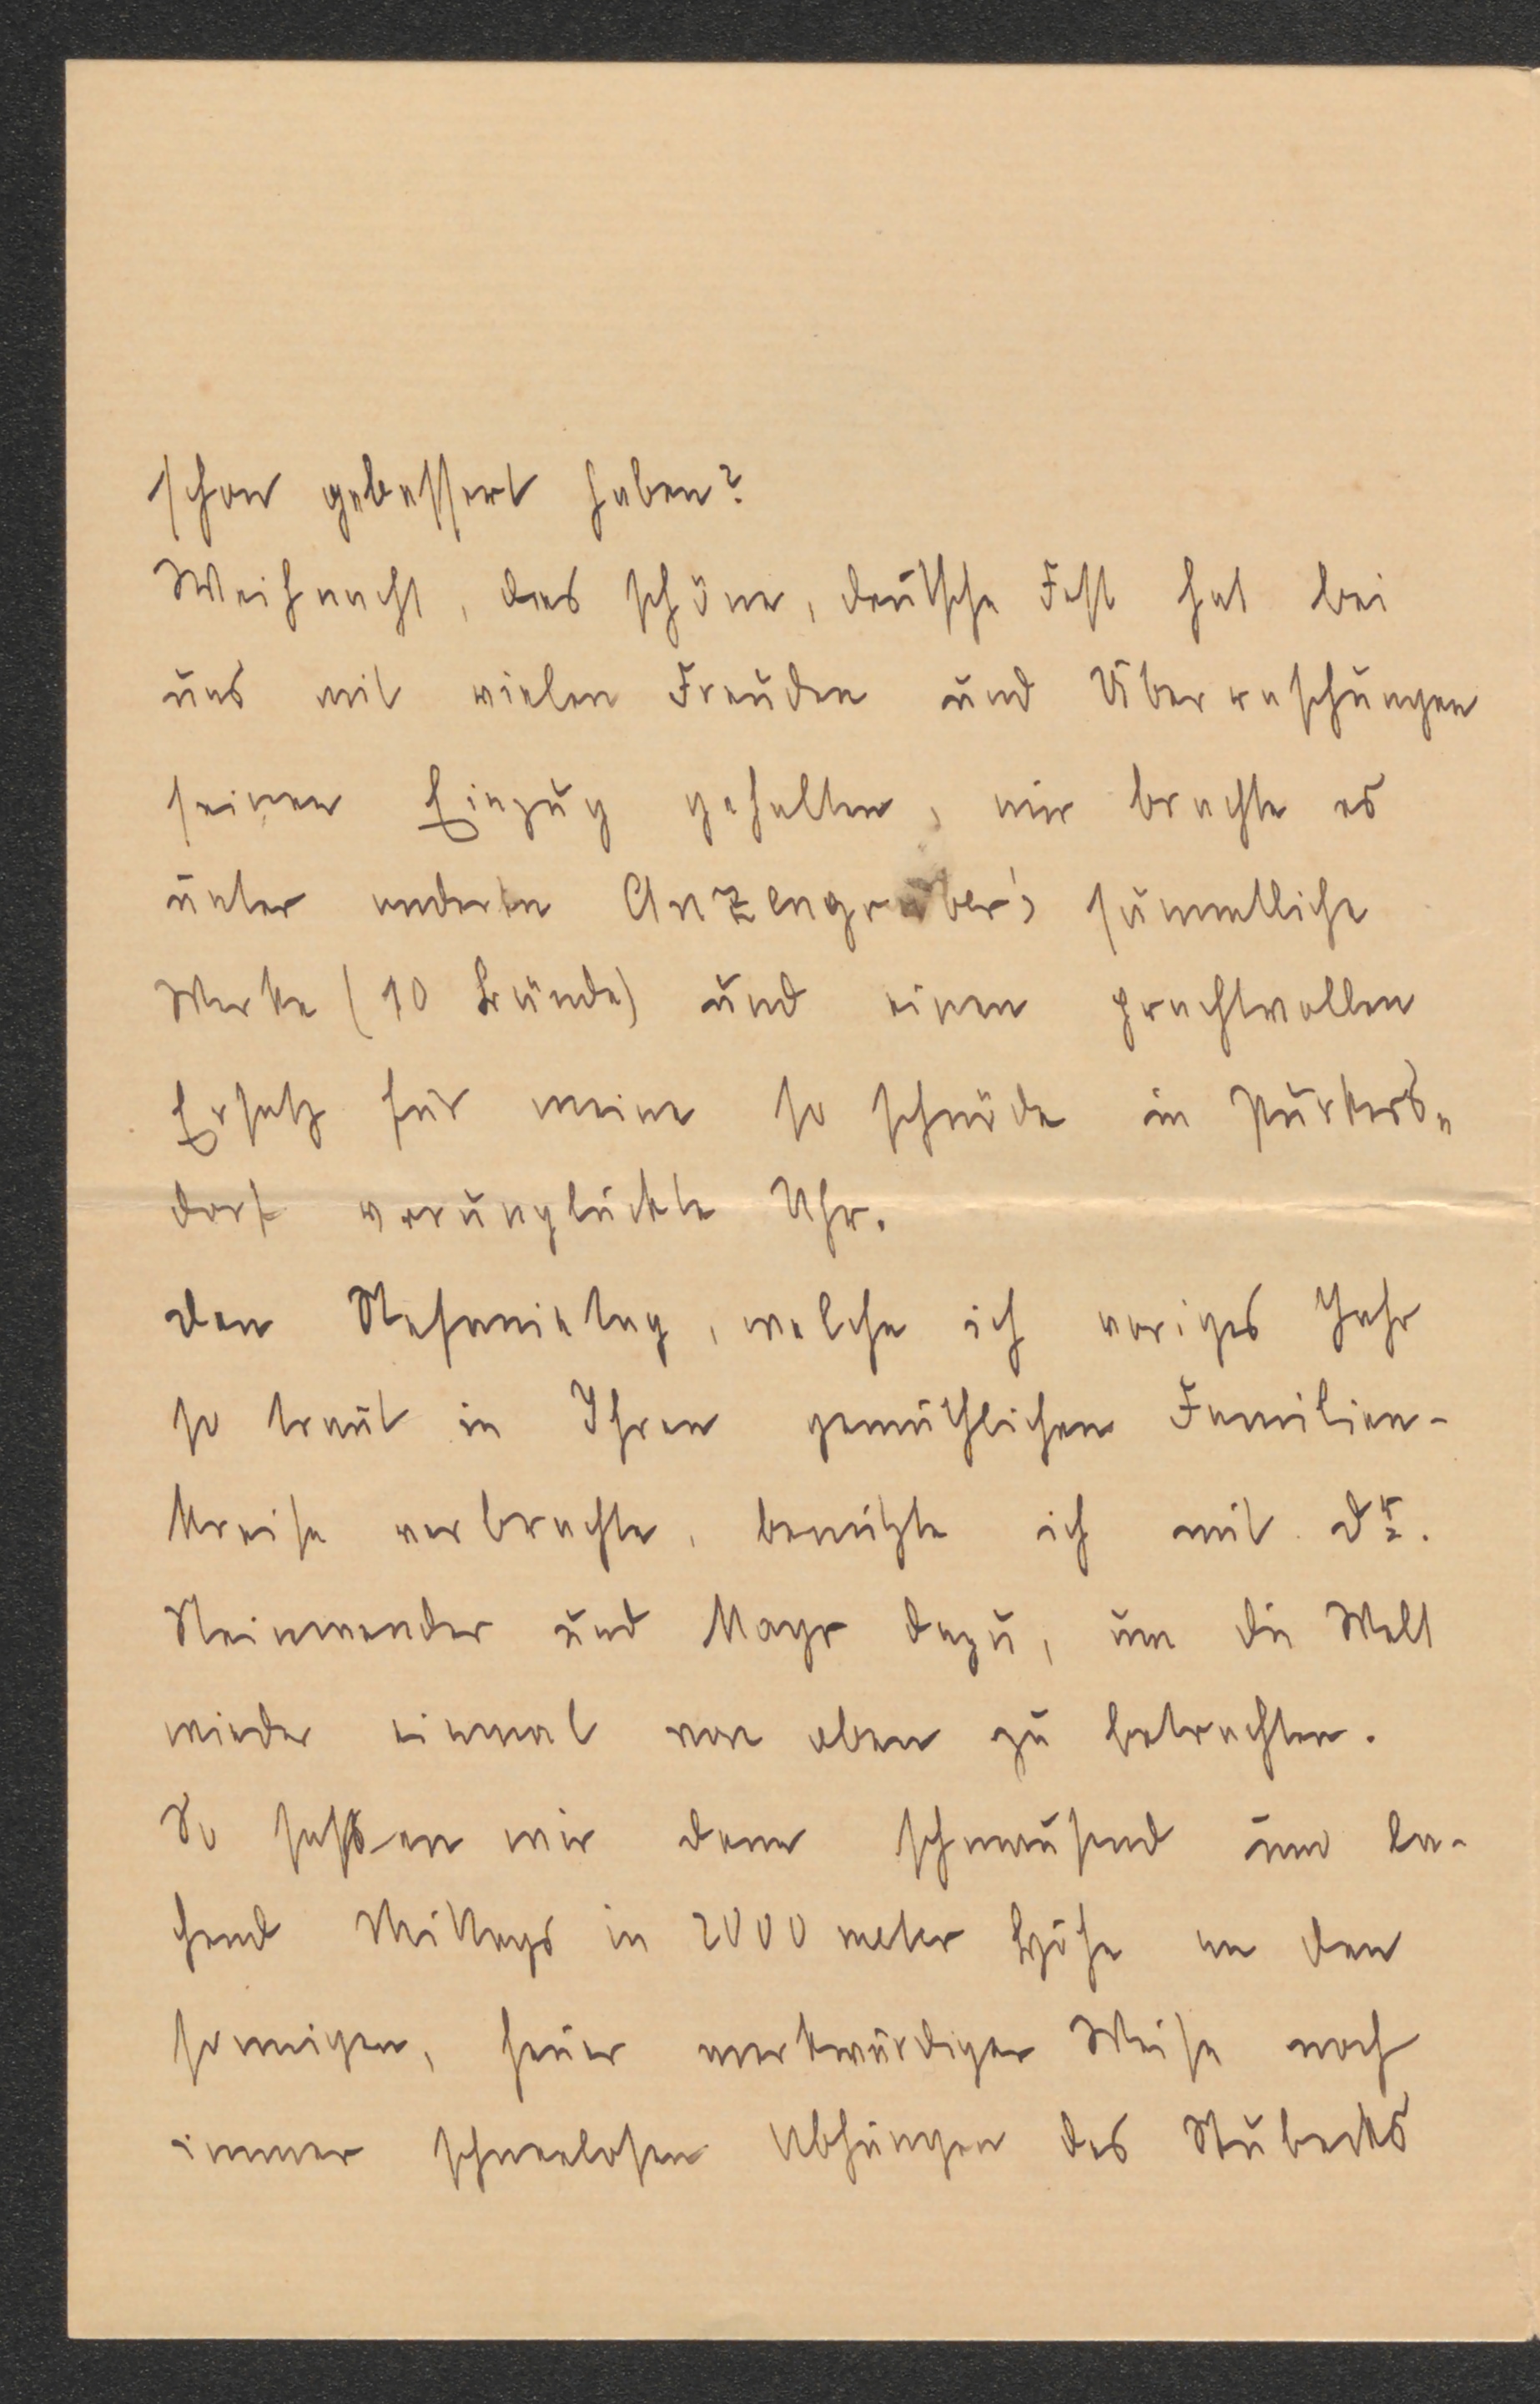 schon gebessert haben?
Weihnacht, das schöne, deutsche Fest hat bei
uns mit vielen Freuden und Überraschungen
seinen Einzug gehalten, mir brachte es
unter anderen Anzengruber's sämmtliche
Werke (10 Bände) und einen prachtvollen
Ersatz für meine so schnöde in Purkers-
dorf verunglückte Uhr.
Den Stefanietag, welche ich voriges Jahr
so traut in Ihren gemüthlichen Familien-
kreise verbrachte, benützte ich mit Dr.
Steinwender und Mayr dazu, um die Welt
wieder einmal von oben zu betrachten.
So saßen wir denn schmausend und la-
chend Mittags in 2000 meter Höhe an den
sonnigen, heuer merkwürdiger Weise noch
immer schneelosen Abhängen des Stubecks